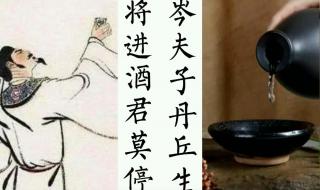 岑夫子丹丘生
将进酒君莫停